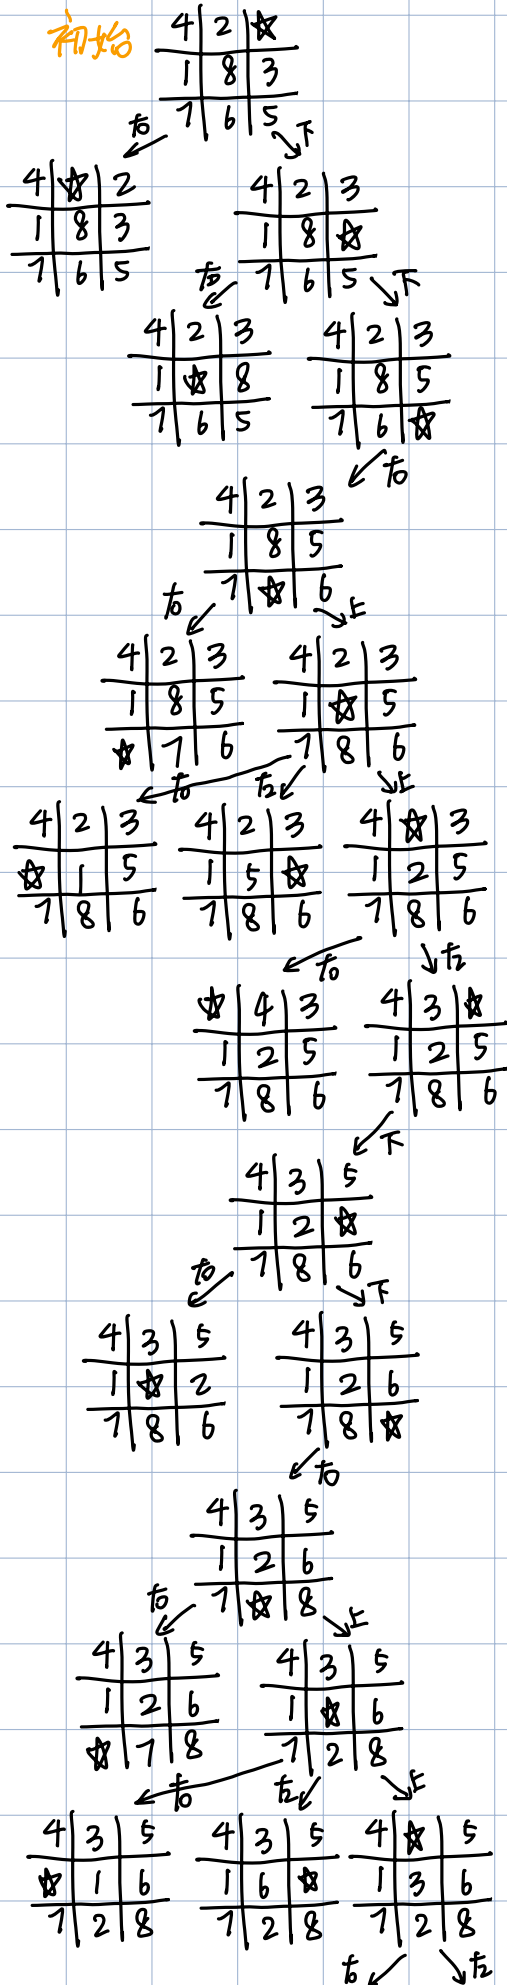 初始
4 2 ☆
1 8 3
7 6 5
右 下
4 ☆ 2
1 8 3
7 6 5
4 2 3
1 8 ☆
7 6 5
右 下
4 2 3
1 ☆ 8
7 6 5
4 2 3
1 8 5
7 6 ☆
右
4 2 3
1 8 5
7 ☆ 6
右 上
4 2 3
1 8 5
☆ 7 6
4 2 3
1 ☆ 5
7 8 6
右 左 上
4 2 3
☆ 1 5
7 8 6
4 2 3
1 5 ☆
7 8 6
4 ☆ 3
1 2 5
7 8 6
右 左
☆ 4 3
1 2 5
7 8 6
4 3 ☆
1 2 5
7 8 6
下
4 3 5
1 2 ☆
7 8 6
右 下
4 3 5
1 ☆ 2
7 8 6
4 3 5
1 2 6
7 8 ☆
右
4 3 5
1 2 6
7 ☆ 8
右 上
4 3 5
1 2 6
☆ 7 8
4 3 5
1 ☆ 6
7 2 8
右 左 上
4 3 5
☆ 1 6
7 2 8
4 3 5
1 6 ☆
7 2 8
4 ☆ 5
1 3 6
7 2 8
右 左